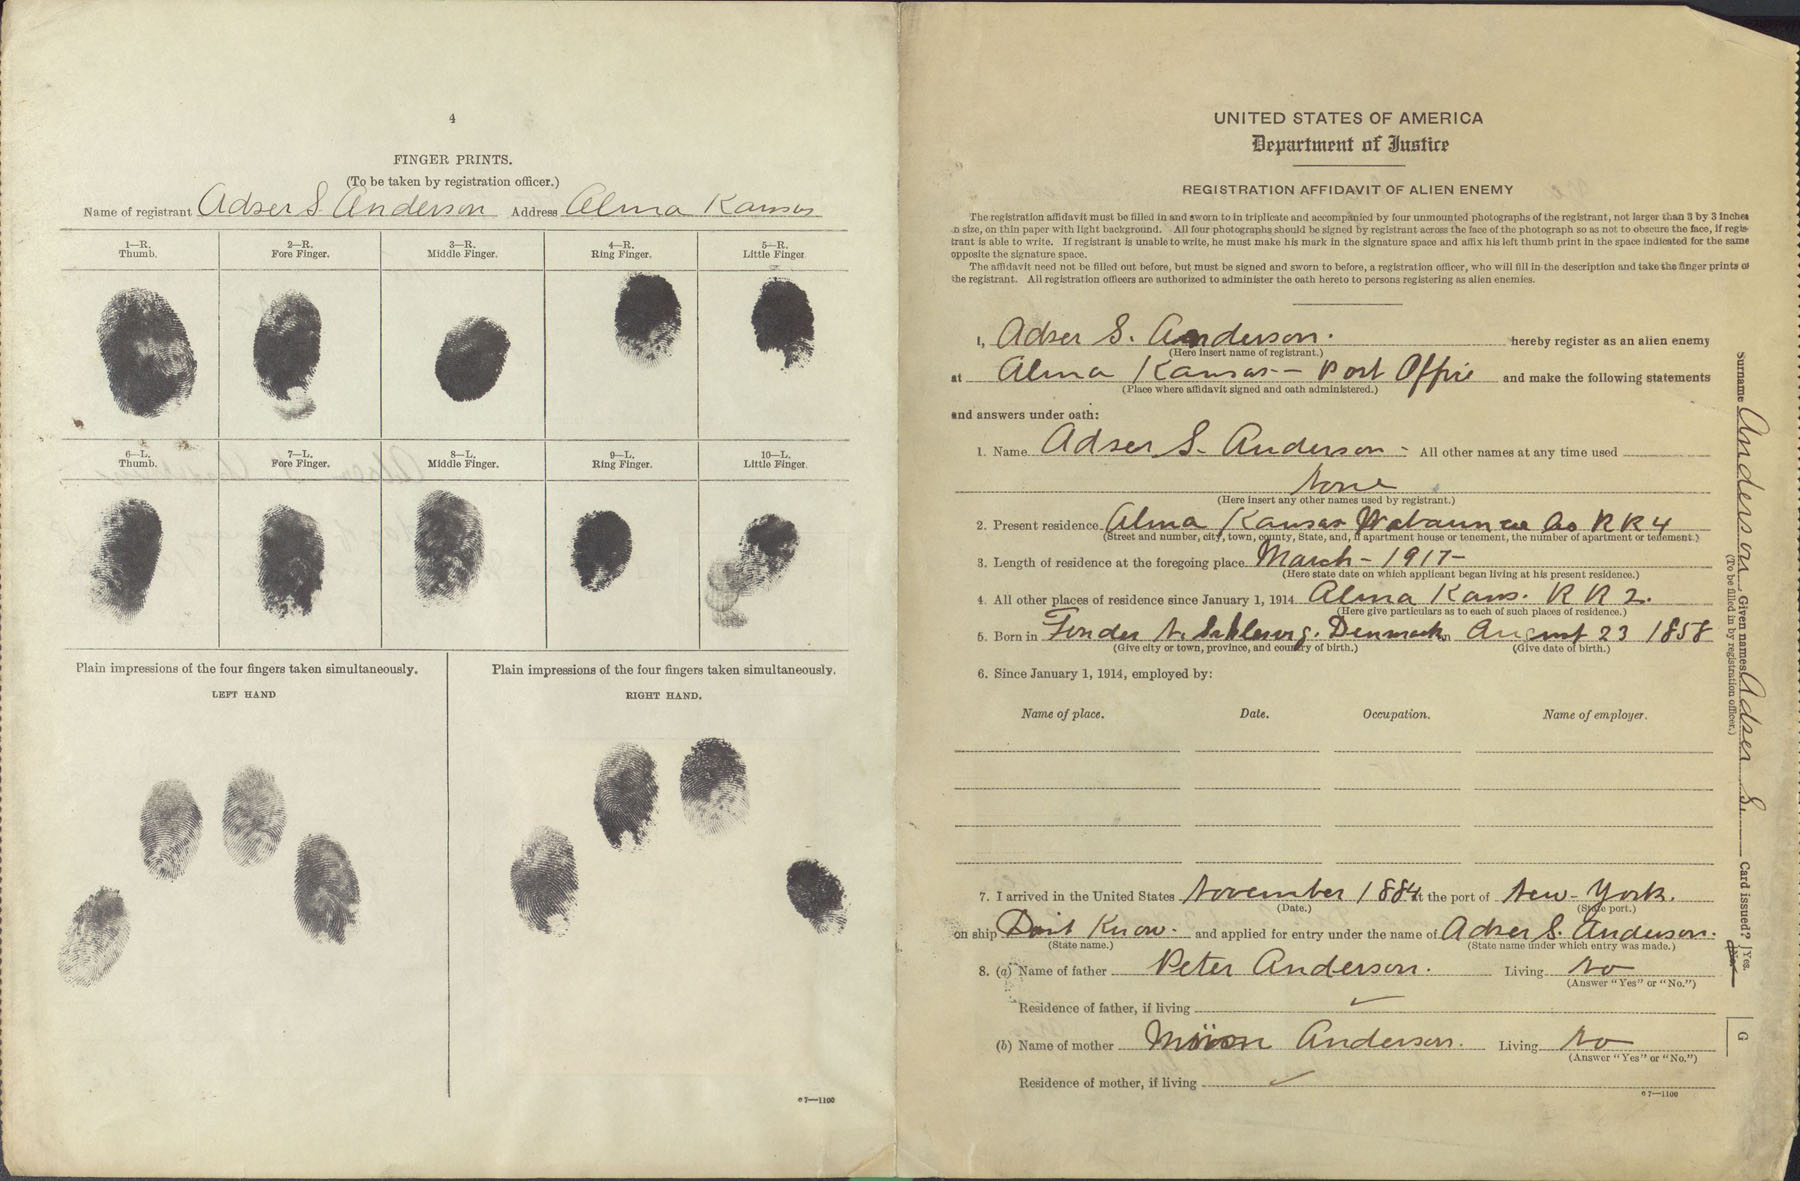 4
FINGER PRINTS.
(To be taken by registration officer.)
Name of registrant Adser S. Anderson Address Alma Kansas
1—R. Thumb.
2—R. Fore Finger.
3—R. Middle Finger.
4—R. Ring Finger.
5—R. Little Finger.
6—L. Thumb.
7—L. Fore Finger.
8—L. Middle Finger.
9—L. Ring Finger.
10—L. Little Finger.
Plain impressions of the four fingers taken simultaneously.
LEFT HAND
Plain impressions of the four fingers taken simultaneously.
RIGHT HAND.
7—1100
UNITED STATES OF AMERICA
Department of Justice
REGISTRATION AFFIDAVIT OF ALIEN ENEMY
The registration affidavit must be filled in and sworn to in triplicate and accompanied by four unmounted photographs of the registrant, not larger than 3 by 3 inches
in size, on thin paper with light background. All four photographs should be signed by registrant across the face of the photograph so as not to obscure the face, if regis-
trant is able to write. If registrant is unable to write, he must make his mark in the signature space and affix his left thumb print in the space indicated for the same
opposite the signature space.
The affidavit need not be filled out before, but must be signed and sworn to before, a registration officer, who will fill in the description and take the finger prints of
the registrant. All registration officers are authorized to administer the oath hereto to persons registering as alien enemies.
I, Adser S. Anderson. hereby register as an alien enemy
(Here insert name of registrant.)
at Alma Kansas — Post Office and make the following statements
(Place where affidavit signed and oath administered.)
and answers under oath:
1. Name Adser S. Anderson - All other names at any time used
None
(Here insert any other names used by registrant.)
2. Present residence Alma Kansas Wabaunsee Co RR4
(Street and number, city, town, county, State, and, if apartment house or tenement, the number of apartment or tenement.)
3. Length of residence at the foregoing place March - 1917 -
(Here state date on which applicant began living at his present residence.)
4. All other places of residence since January 1, 1914 Alma Kans. RR 2.
(Here give particulars as to each of such places of residence.)
5. Born in N. Denmark on August 23 1858
(Give city or town, province, and country of birth.) (Give date of birth.)
6. Since January 1, 1914, employed by:
Name of place. Date. Occupation. Name of employer.
7. I arrived in the United States November 1884 at the port of New-York.
(Date.) (State port.)
on ship Dont Know. and applied for entry under the name of Adser S. Anderson.
(State name.) (State name under which entry was made.)
8. (a) Name of father Peter Anderson. Living No
(Answer "Yes" or "No.")
Residence of father, if living
(b) Name of mother Anderson. Living No
(Answer "Yes" or "No.")
Residence of mother, if living
7—1100
Surname Anderson Given names Adser S. Card issued? Yes. No.
(To be filled in by registration officer.)
G